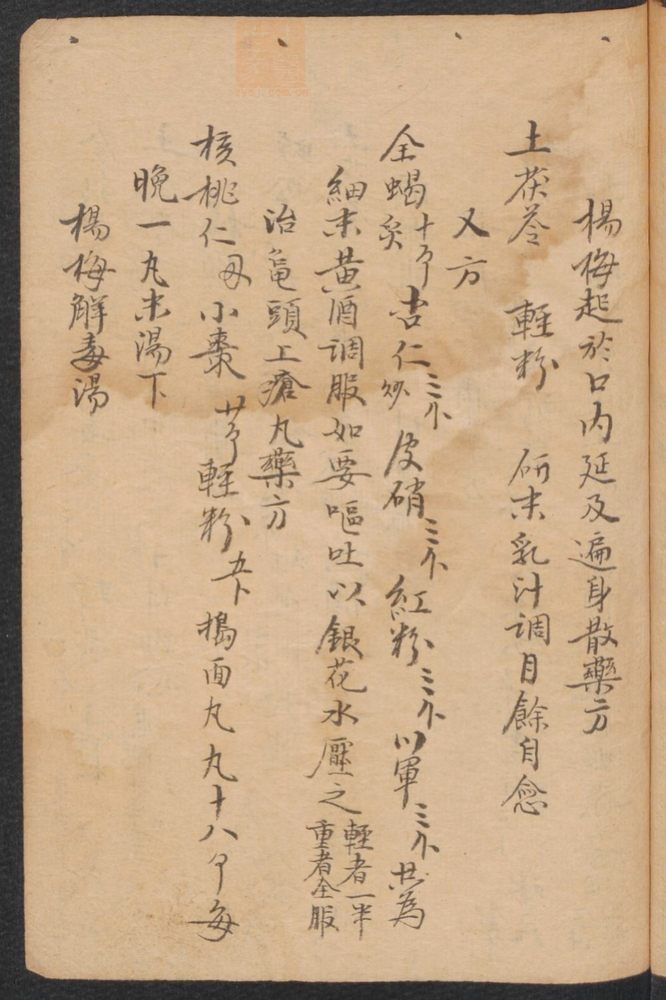 楊梅起於口内延及遍身散藥方
土茯苓 輕粉 研末乳汁調目餘自愈
又方
全蝎炙十个 杏仁炒三个 皮硝三个 紅粉三个 川軍三个 共為
細末黃酒调服如要嘔吐以銀花水壓之輕者一半重者全服
治龟頭上瘡丸藥方
核桃仁 小棗 輕粉 搗面丸丸十八个每
晚一丸米湯下
楊梅解毒湯